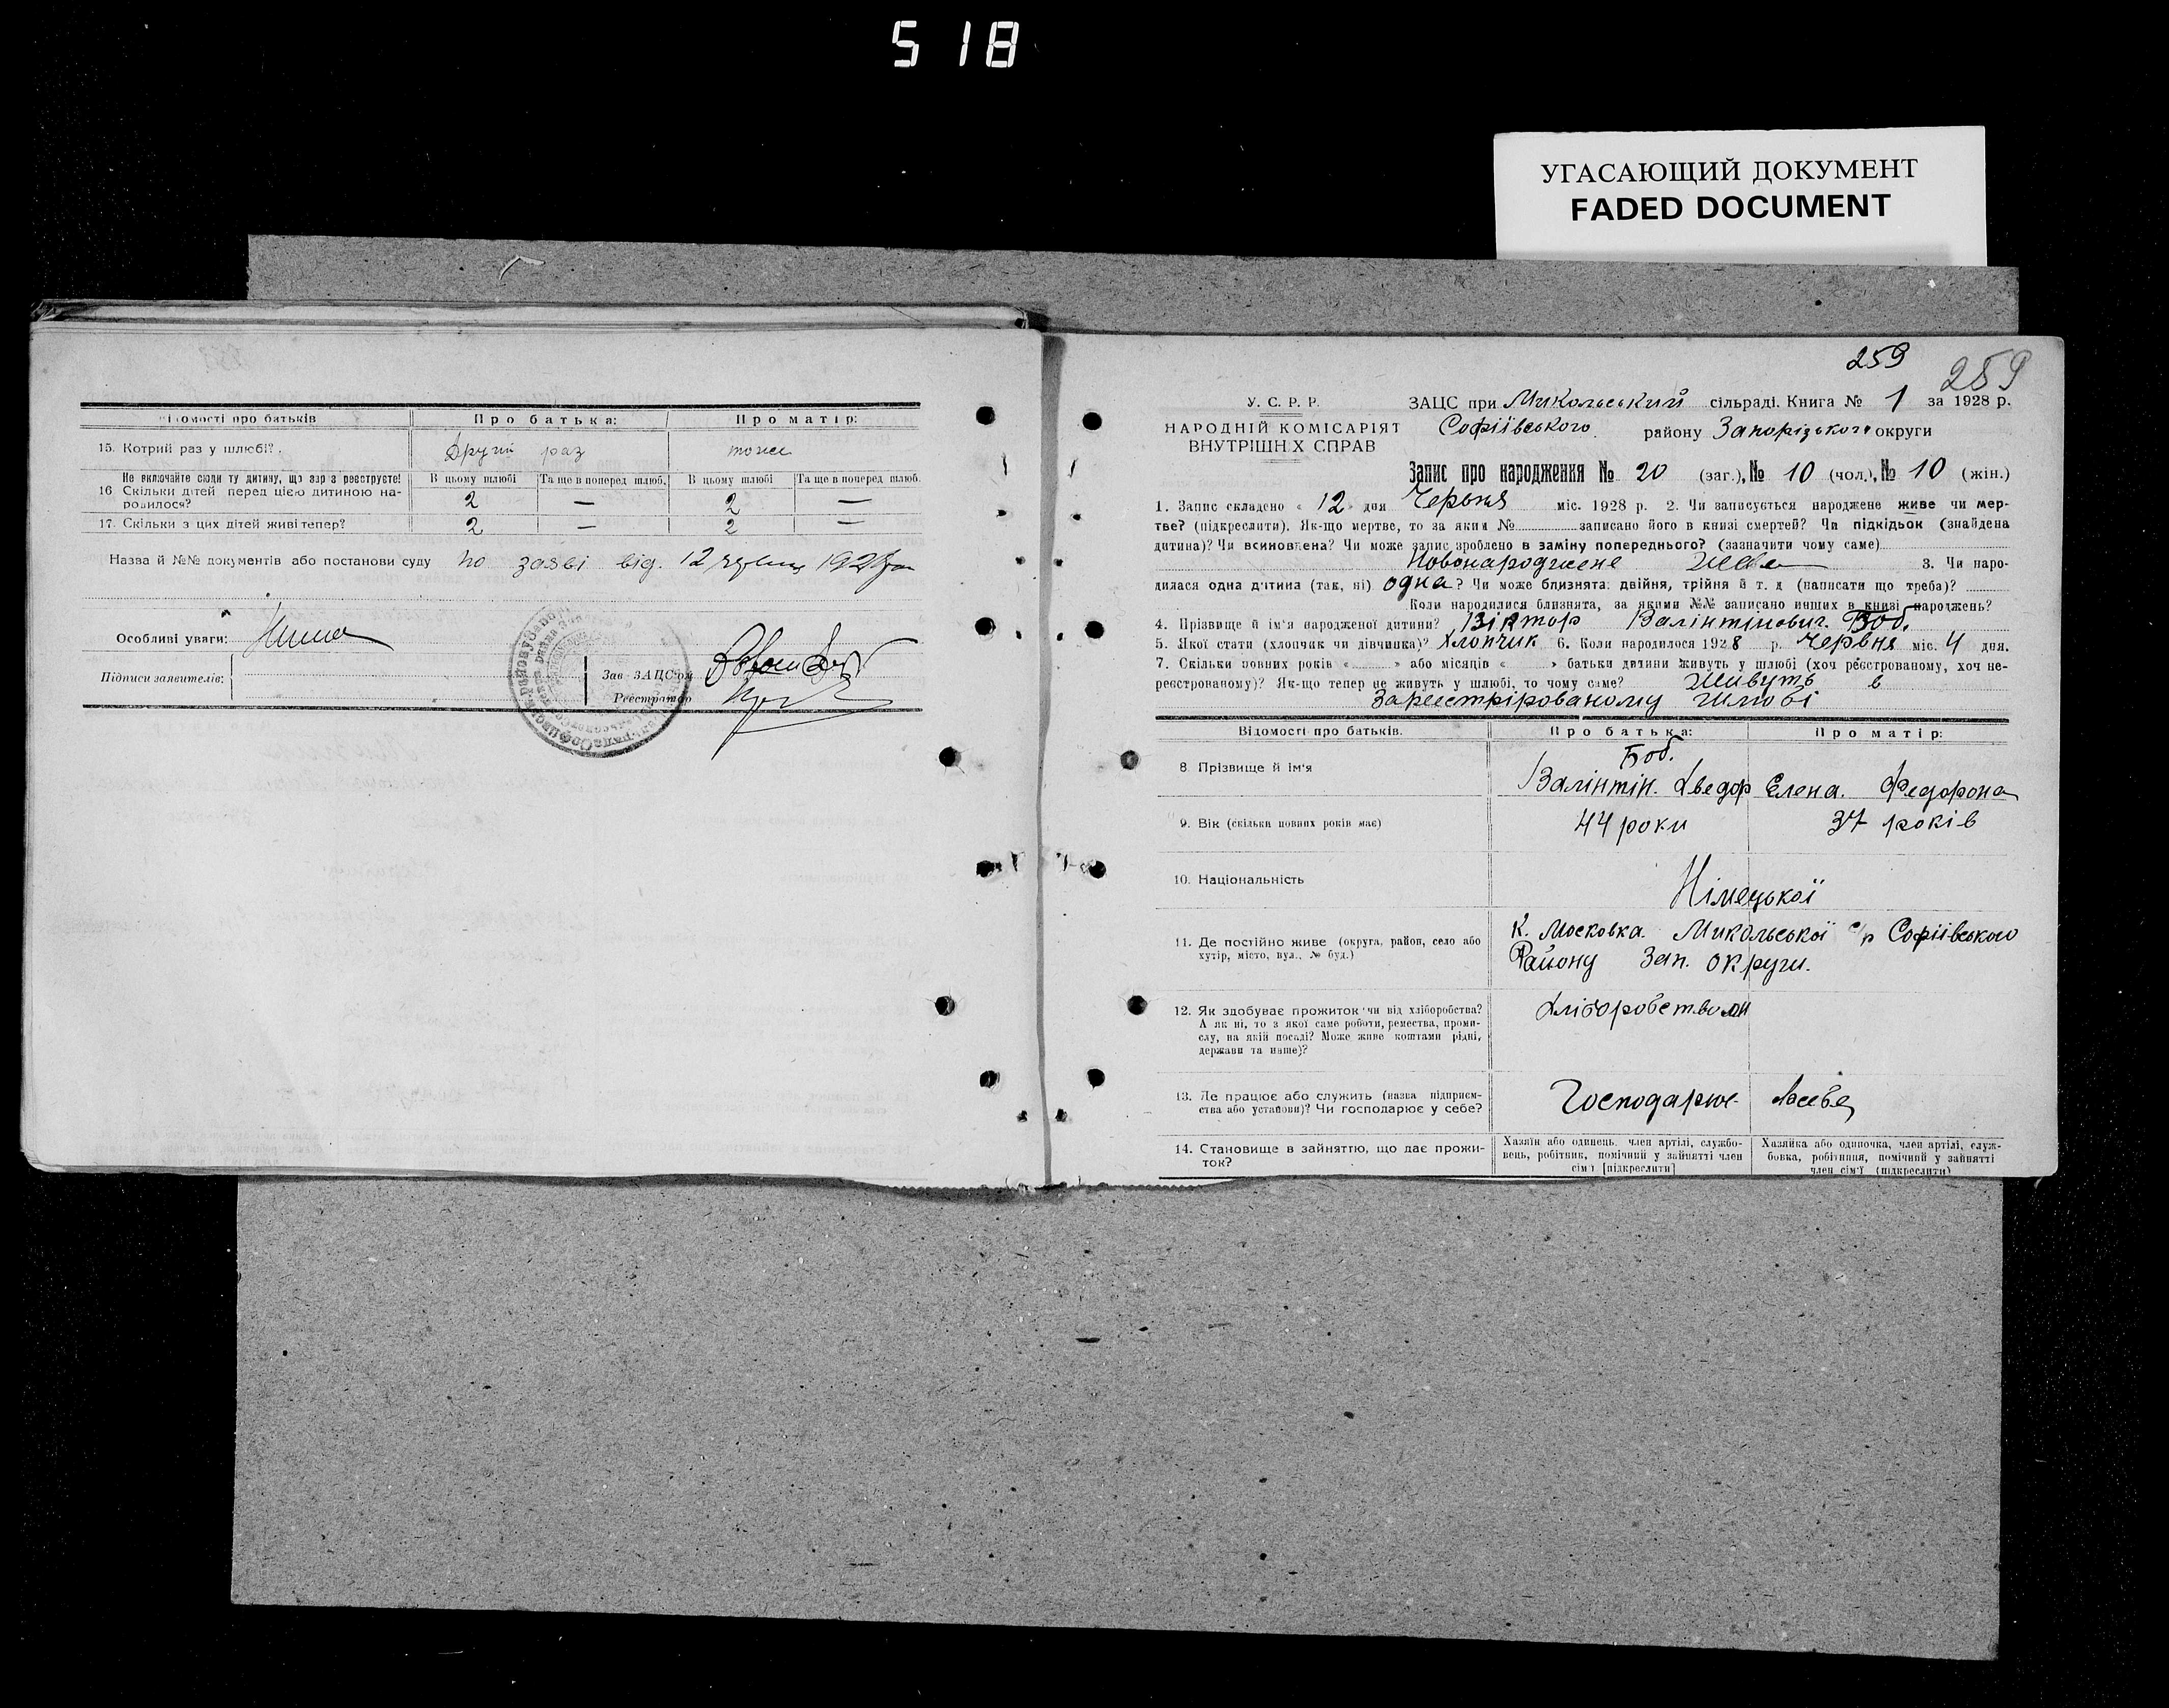 518
УГАСАЮЩИЙ ДОКУМЕНТ
FADED DOCUMENT
Відомості про батьків
Про батька:
Про матір:
15. Котрий раз у шлюбі?
Другий раз
тоже
Не включайте сюди ту дитину, що зараз реєструєте!
В цьому шлюбі
Та ще в поперед шлюб.
В цьому шлюбі
Та ще в поперед шлюб.
16 Скільки дітей перед цією дитиною народилося?
2 — 2 —
17. Скільки з цих дітей живі тепер?
2 — 2 —
Назва й №№ документів або постанови суду по заяві від. 12 червня 1928
Особливі уваги:
Підписи заявителів:
Зав ЗАЦС'ом
Реєстратор
259
259
У. С. Р. Р.
НАРОДНІЙ КОМІСАРІЯТ
ВНУТРІШНІХ СПРАВ
ЗАЦС при Микольський сільраді. Книга № 1 за 1928 р.
Софіївського району Запорізького округи
Запис про народження № 20 (заг.), № 10 (чол.), № 10 (жін.)
1. Запис складено « 12 » дня Червня міс. 1928 р. 2. Чи записується народжене живе чи мер-
тве? (підкреслити). Як-що мертве, то за яким № записано його в книзі смертей? Чи підкідьок (знайдена
дитина)? Чи всиновлена? Чи може запис зроблено в заміну попереднього? (зазначити чому саме)
Новонароджене живе 3. Чи наро-
дилася одна дитина (так, ні) одна? Чи може близнята: двійня, трійня й т. д (написати що треба)?
Коли народилися близнята, за якими №№ записано инших в книзі народжень?
4. Прізвище й ім'я народженої дитини? Віктор Валінтінович. Боб.
5. Якої стати (хлопчик чи дівчинка)? Хлопчик 6. Коли народилося 1928 р. Червня міс. 4 дня.
7. Скільки повних років « » або місяців « » батьки дитини живуть у шлюбі (хоч реєстрованому, хоч не-
реєстрованому)? Як-що тепер не живуть у шлюбі, то чому саме? Живуть в
Зареєстрірованому шлюбі
Відомості про батьків.
Про батька:
Про матір:
8. Прізвище й ім'я
Боб.
Валінтін. Хведор
Елена. Федорона
9. Вік (скільки повних років має)
44 роки
37 років
10. Національність
Німецької
11. Де постійно живе (округа, район, село або
хутір, місто, вул., № буд.)
К. Московка. Микольської с/р Софіївського
Району Зап. округи.
12. Як здобуває прожиток чи від хліборобства?
А як ні, то з якої саме роботи, ремества, проми-
слу, на якій посаді? Може живе коштами рідні,
держави та инше)?
Хліборобством
13. Де працює або служить (назва підприєм-
ства або установи)? Чи господарює у себе?
Господарює
14. Становище в зайняттю, що дає прожи-
ток?
Хазяїн або одинець, член артілі, службо-
вець, робітник, помічний у зайнятті член
сім'ї [підкреслити]
Хазяйка або одиночка, член артілі, служ-
бовка, робітниця, помічний у зайнятті
член сім'ї (підкреслити)